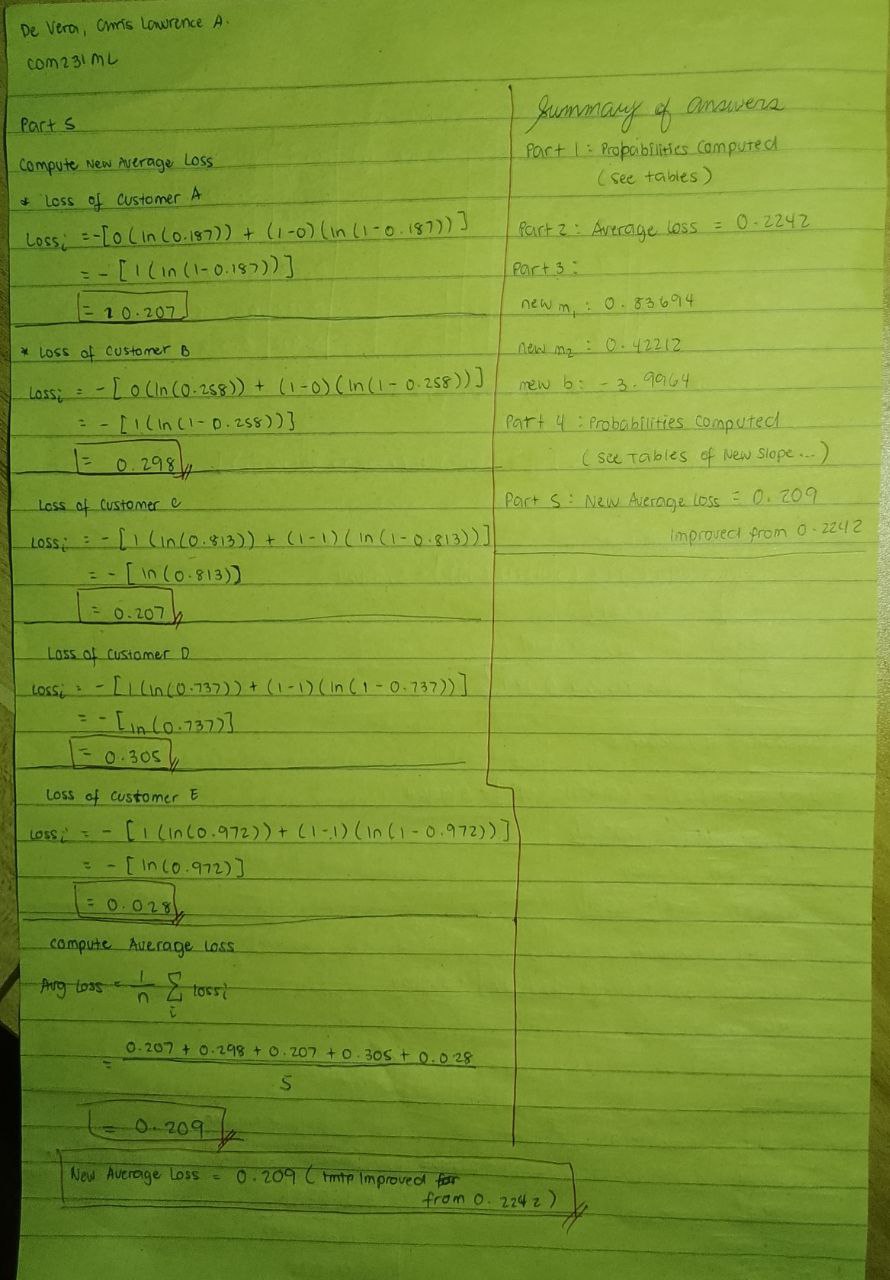 De Vera, Chris Lawrence A.
COM231ML
Part 5
Compute New Average Loss
* Loss of Customer A
Loss_i = -[0(ln(0.187)) + (1-0)(ln(1-0.187))]
= - [1(ln(1-0.187))]
= 0.207
* Loss of Customer B
Loss_i = - [0(ln(0.258)) + (1-0)(ln(1-0.258))]
= - [1(ln(1-0.258))]
= 0.298
Loss of Customer C
Loss_i = - [1(ln(0.813)) + (1-1)(ln(1-0.813))]
= - [ln(0.813)]
= 0.207
Loss of Customer D
Loss_i = - [1(ln(0.737)) + (1-1)(ln(1-0.737))]
= - [ln(0.737)]
= 0.305
Loss of Customer E
Loss_i = - [1(ln(0.972)) + (1-1)(ln(1-0.972))]
= - [ln(0.972)]
= 0.028
Compute Average Loss
Avg Loss = 1/n Σ_i loss_i
= 0.207 + 0.298 + 0.207 + 0.305 + 0.028 / 5
= 0.209
New Average Loss = 0.209 (Improved
from 0.2242)
Summary of answers
Part 1: Probabilities Computed
(see tables)
Part 2: Average loss = 0.2242
Part 3:
new m₁: 0.83694
new m₂: 0.42212
new b: -3.9964
Part 4: Probabilities Computed
(see Tables of New Slope...)
Part 5: New Average Loss = 0.209
improved from 0.2242